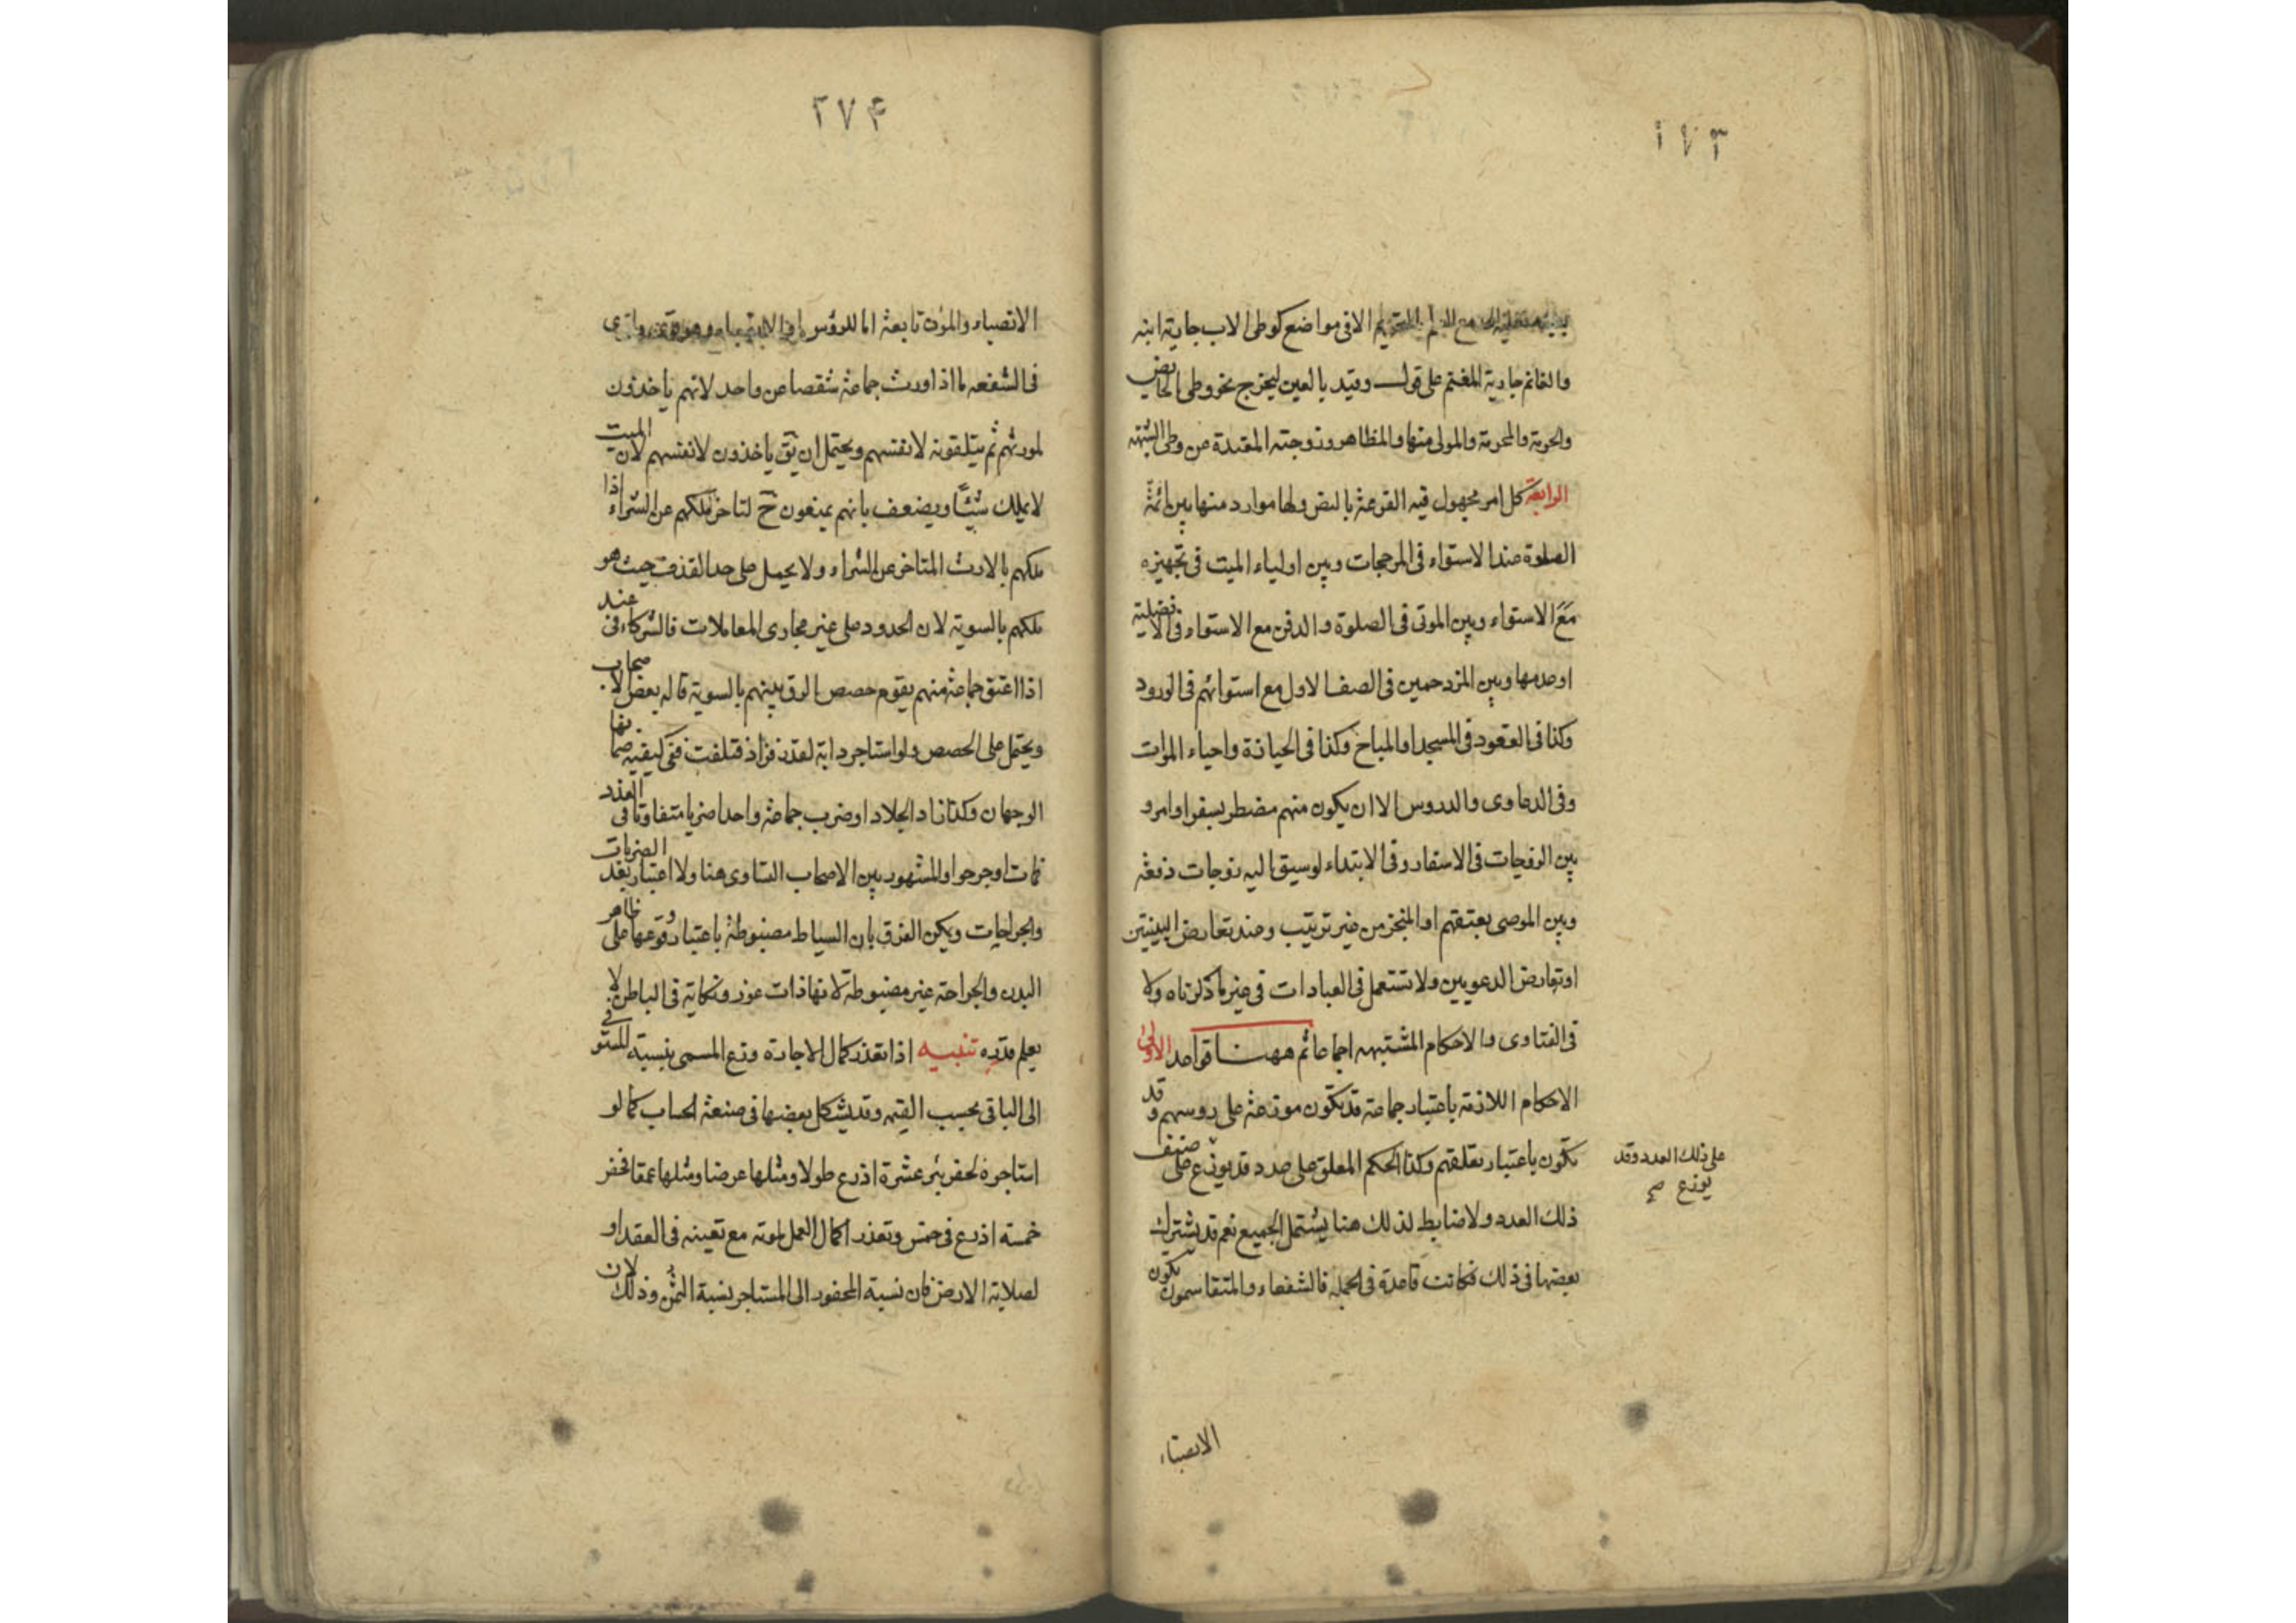 ٢٧٣
الا فى مواضع كوطى الاب جارية ابنه
والغانم جارية المغنم على قول وقيد بالعين ليخرج نحو وطى الحايض
والمحرمة والمولى منها والمظاهر وزوجته المعتدة من وطى الشبهه
الرابعة كل امر مجهول فيه القرعة بالنص ولها موارد منها بين ائمة
الصلوة عند الاستواء فى المرجحات وبين اولياء الميت فى تجهيزه
مع الاستواء وبين الموتى فى الصلوة والدفن مع الاستواء فى الافضلية
او عدمها وبين المزدحمين فى الصف الاول مع استوائهم فى الورود
وكذا فى القعود فى المسجد او المباح وكذا فى الحيازة واحياء الموات
وفى الدعاوى والدروس الا ان يكون منهم مضطر بسفر او امرو
بين الزوجات فى الاسفار وفى الابتداء لو سيق اليه زوجات دفعة
وبين الموصى بعتقهم او المنجز من غير ترتيب وعند تعارض البينتين
او تعارض الدعويين ولا تستعمل فى العبادات فى غير ما ذكرناه ولا
فى الفتاوى والاحكام المشتبهه اجماعا ثم ههنا قواعد الاولى
الاحكام اللازمة باعتبار جماعة قد تكون موزعة على روسهم وقد
تكون باعتبار تعلقهم وكذا الحكم المعلق على عدد قد يوزع على صنيف
على ذلك العدد وقد
يوزع صح
ذلك العدد ولا ضابط لذلك هنا يشتمل الجميع نعم قد يشترك
بعضها فى ذلك فكانت قاعدة فى الجمله فالشفعاء والمتقاسمون يكون
الانصباء
٢٧۴
الانصباء والمؤن تابعة اما للرؤس
فى الشفعه ما اذا ورث جماعة شقصا عن واحد لانهم ياخذون
لمورثهم ثم يتلقونه لانفسهم ويحتمل ان يق ياخذون لانفسهم لان الميت
لا يملك شيئا ويضعف بانهم يمنعون ح لتاخر ملكهم عن الشراء اذا
ملكهم بالارث المتاخر عن الشراء ولا يحمل على حد القذف حيث هو
ملكهم بالسوية لان الحدود على غير مجارى المعاملات فالشركاء فى عند
اذا اعتق جماعة منهم يقوم حصص الرق بينهم بالسوية قاله بعض الاصحاب
ويحتمل على الحصص ولو استاجر دابة لقدر فزاد فتلفت ففى كيفيه ضمانها
الوجهان وكذا زاد الجلاد او ضرب جماعة واحدا ضربا متفاوتا فى العدد
فمات او جرحوا والمشهور بين الاصحاب التساوى هنا ولا اعتبار بعد الضربات
والجراحات ويمكن الفرق بان السياط مضبوطة باعتبار وقوعها على ظاهر
البدن والجراحة غير مضبوطة لانها ذات غور ونكاية فى الباطن لا
يعلم قدره تنبيه اذا تعذر كمال الاجارة وزع المسمى بنسبة المستوفى
الى الباقى بحسب القيمه وقد يشكل بعضها فى صنعة الحساب كما لو
استاجره لحفر بئر عشرة اذرع طولا ومثلها عرضا ومثلها عمقا فحفر
خمسة اذرع فى خمس وتعذر اكمال العمل لموته مع تعينه فى العقد او
لصلابة الارض فان نسبة المحفور الى المستاجر نسبة الثمن وذلك لان